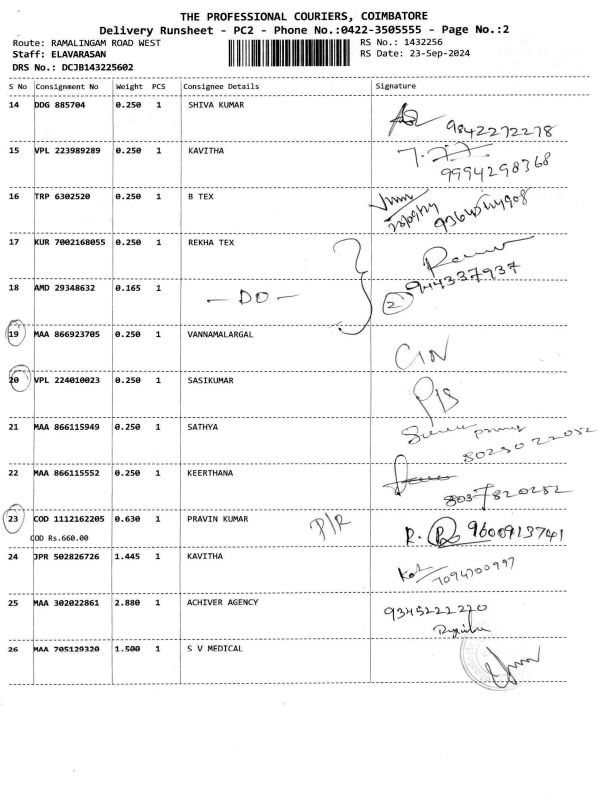 THE PROFESSIONAL COURIERS, COIMBATORE
Delivery Runsheet - PC2 - Phone No.:0422-3505555 - Page No.:2
Route: RAMALINGAM ROAD WEST RS No.: 1432256
Staff: ELAVARASAN RS Date: 23-Sep-2024
DRS No.: DCJB143225602
S No Consignment No Weight PCS Consignee Details Signature
14 DDG 885704 0.250 1 SHIVA KUMAR 9842272278
15 VPL 223989289 0.250 1 KAVITHA 9994298368
16 TRP 6302520 0.250 1 B TEX
17 KUR 7002168055 0.250 1 REKHA TEX
18 AMD 29348632 0.165 1 - DO - 2 944337937
19 MAA 866923705 0.250 1 VANNAMALARGAL
20 VPL 224010023 0.250 1 SASIKUMAR
21 MAA 866115949 0.250 1 SATHYA
22 MAA 866115552 0.250 1 KEERTHANA
23 COD 1112162205 0.630 1 PRAVIN KUMAR P/R 9600913741
COD Rs.660.00
24 JPR 502826726 1.445 1 KAVITHA 7094700997
25 MAA 302022861 2.880 1 ACHIVER AGENCY 9345222220
26 MAA 705129320 1.500 1 S V MEDICAL